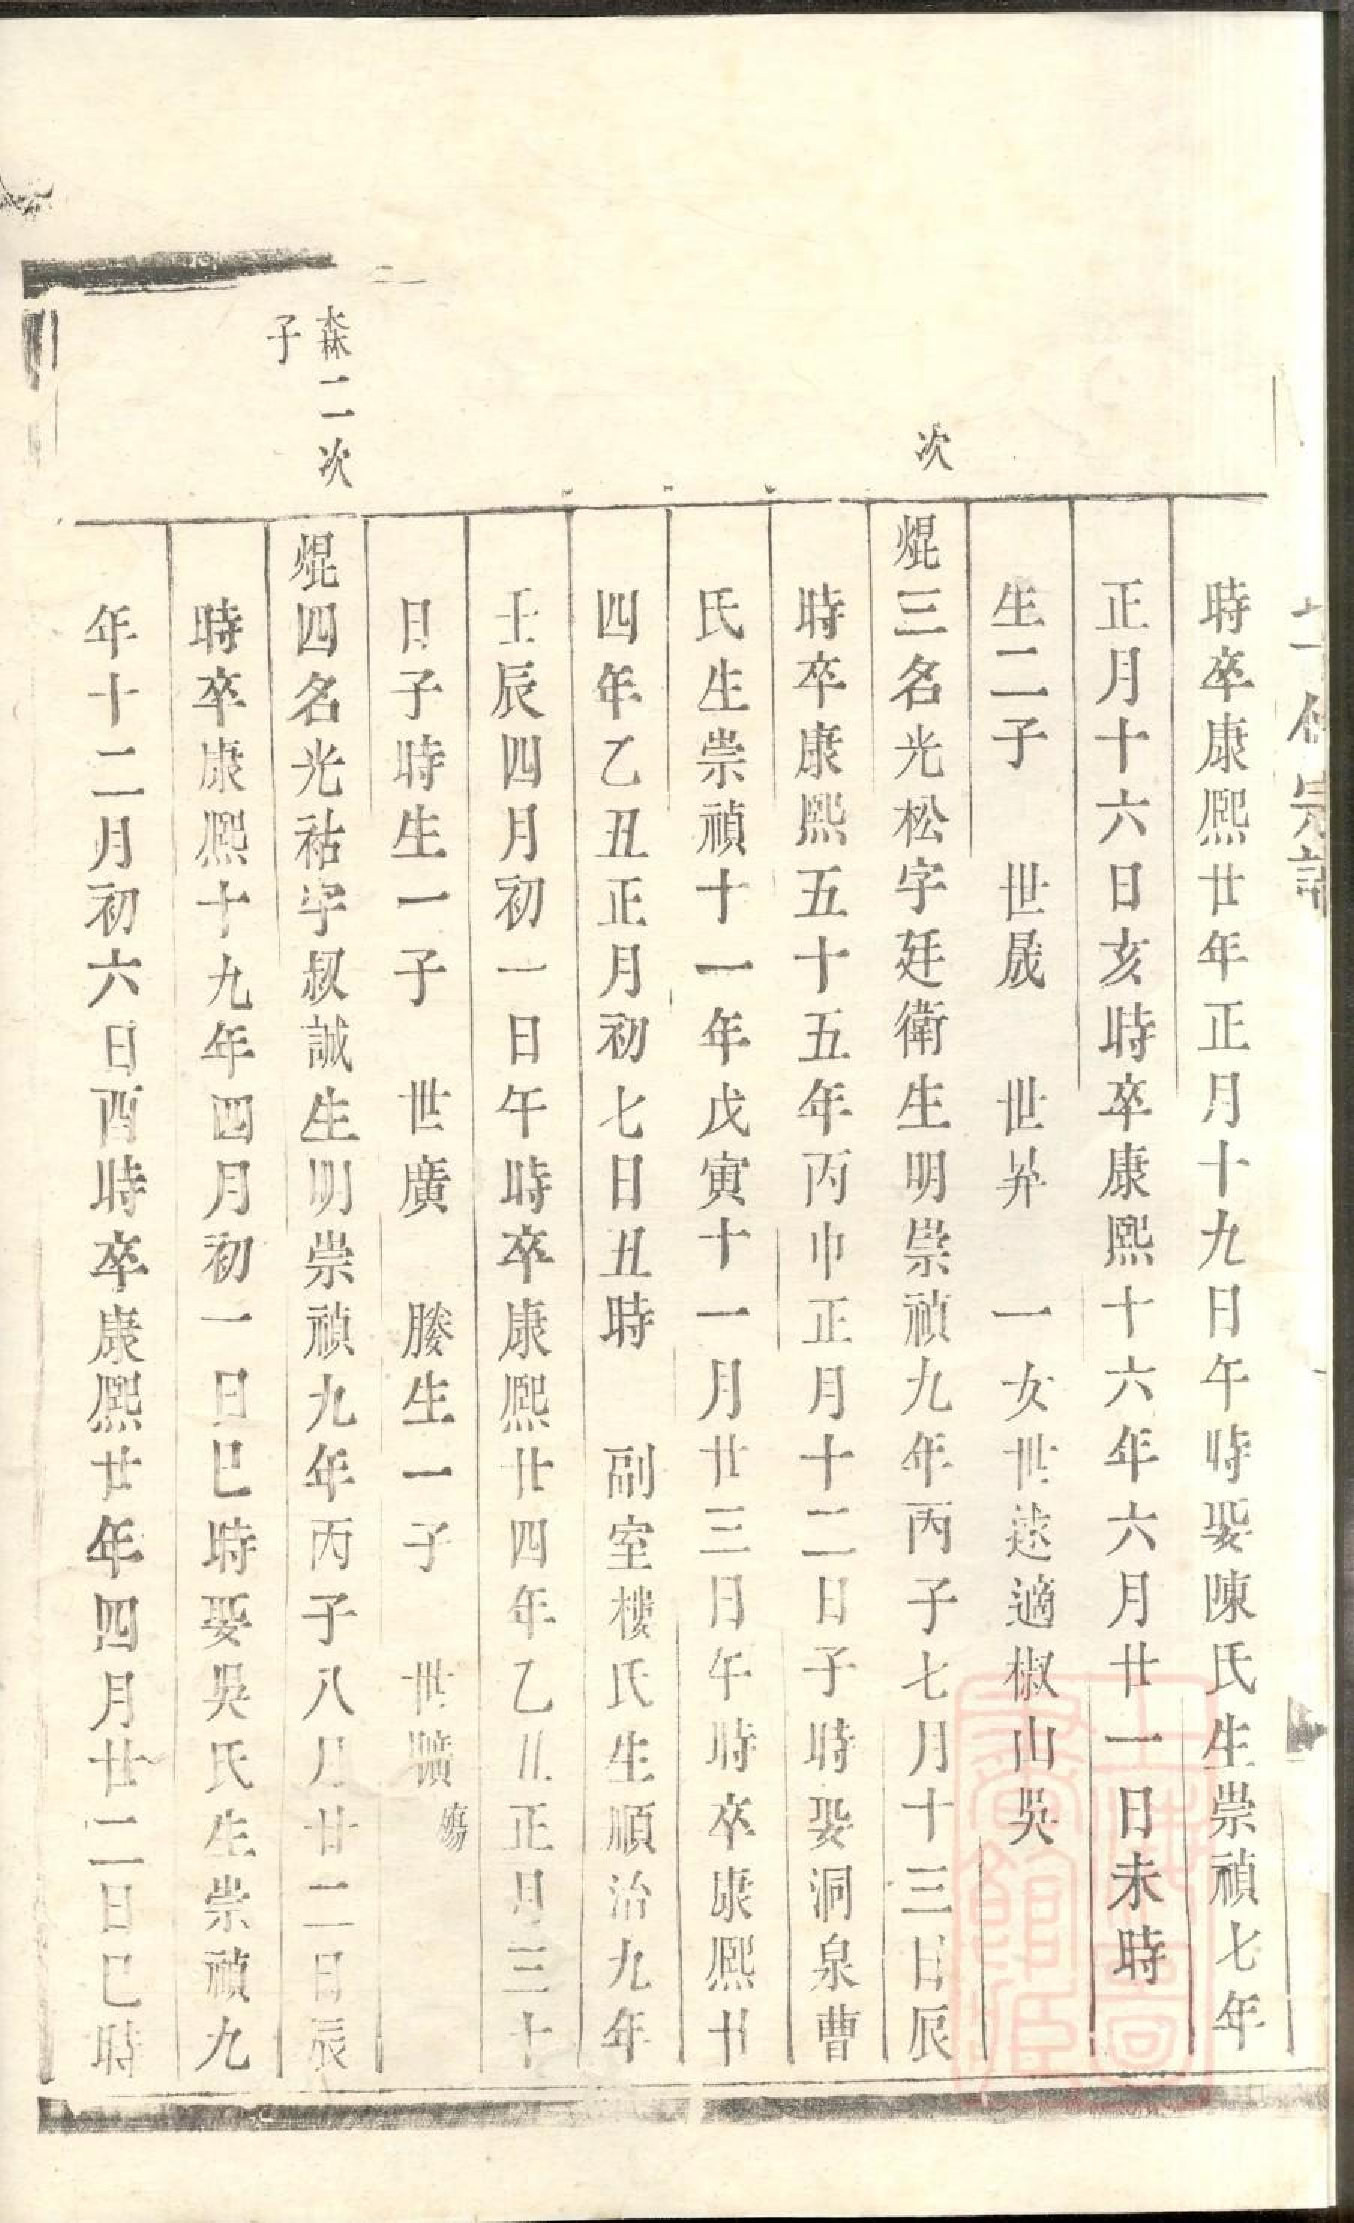 時卒康熙廿年正月十九日午時娶陳氏生崇禎七年
正月十六日亥時卒康熙十六年六月廿一日未時
生二子　世晟　世昇　一女世逑適椒山吳
次
焜三名光松字廷衛生明崇禎九年丙子七月十三日辰
時卒康熙五十五年丙申正月十二日子時娶洞泉曹
氏生崇禎十一年戊寅十一月廿三日午時卒康熙廿
四年乙丑正月初七日丑時　副室樓氏生順治九年
壬辰四月初一日午時卒康熙廿四年乙丑正月三十
日子時生一子　世廣　媵生一子　世獷殤
森二次
子
焜四名光祜字叔誠生明崇禎九年丙子八月廿二日辰
時卒康熙十九年四月初一日巳時娶吳氏生崇禎九
年十二月初六日酉時卒康熙廿年四月廿二日巳時